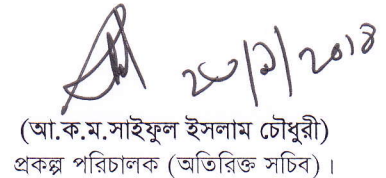 ২০/১/২০১৪
(আ.ক.ম.সাইফুল ইসলাম চৌধুরী)
প্রকল্প পরিচালক (অতিরিক্ত সচিব)।